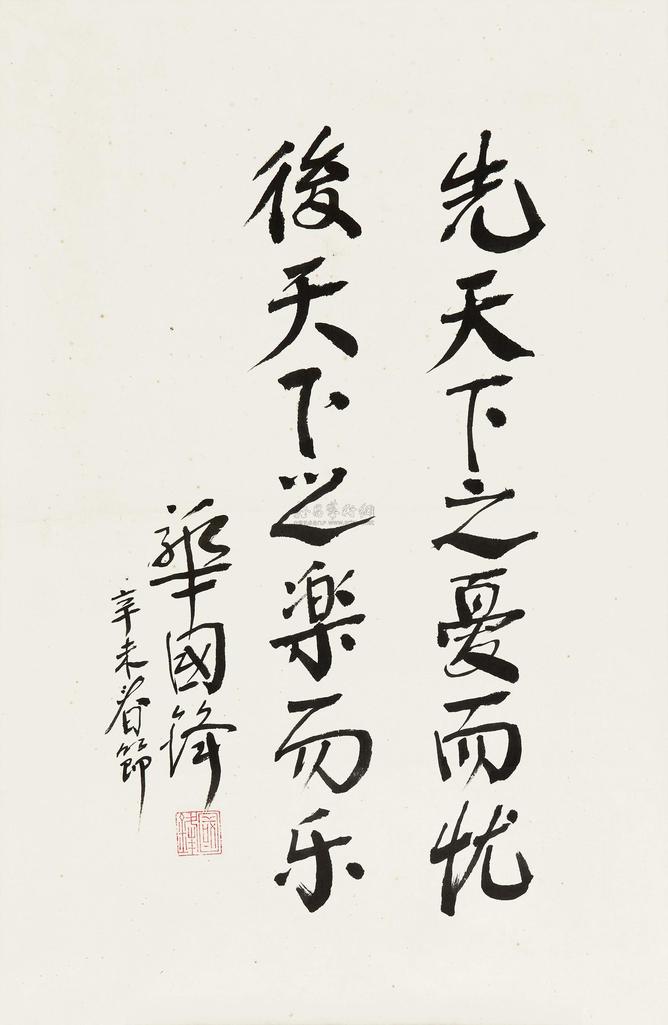 先天下之憂而忧
後天下之楽而乐
華國鋒
辛未春節